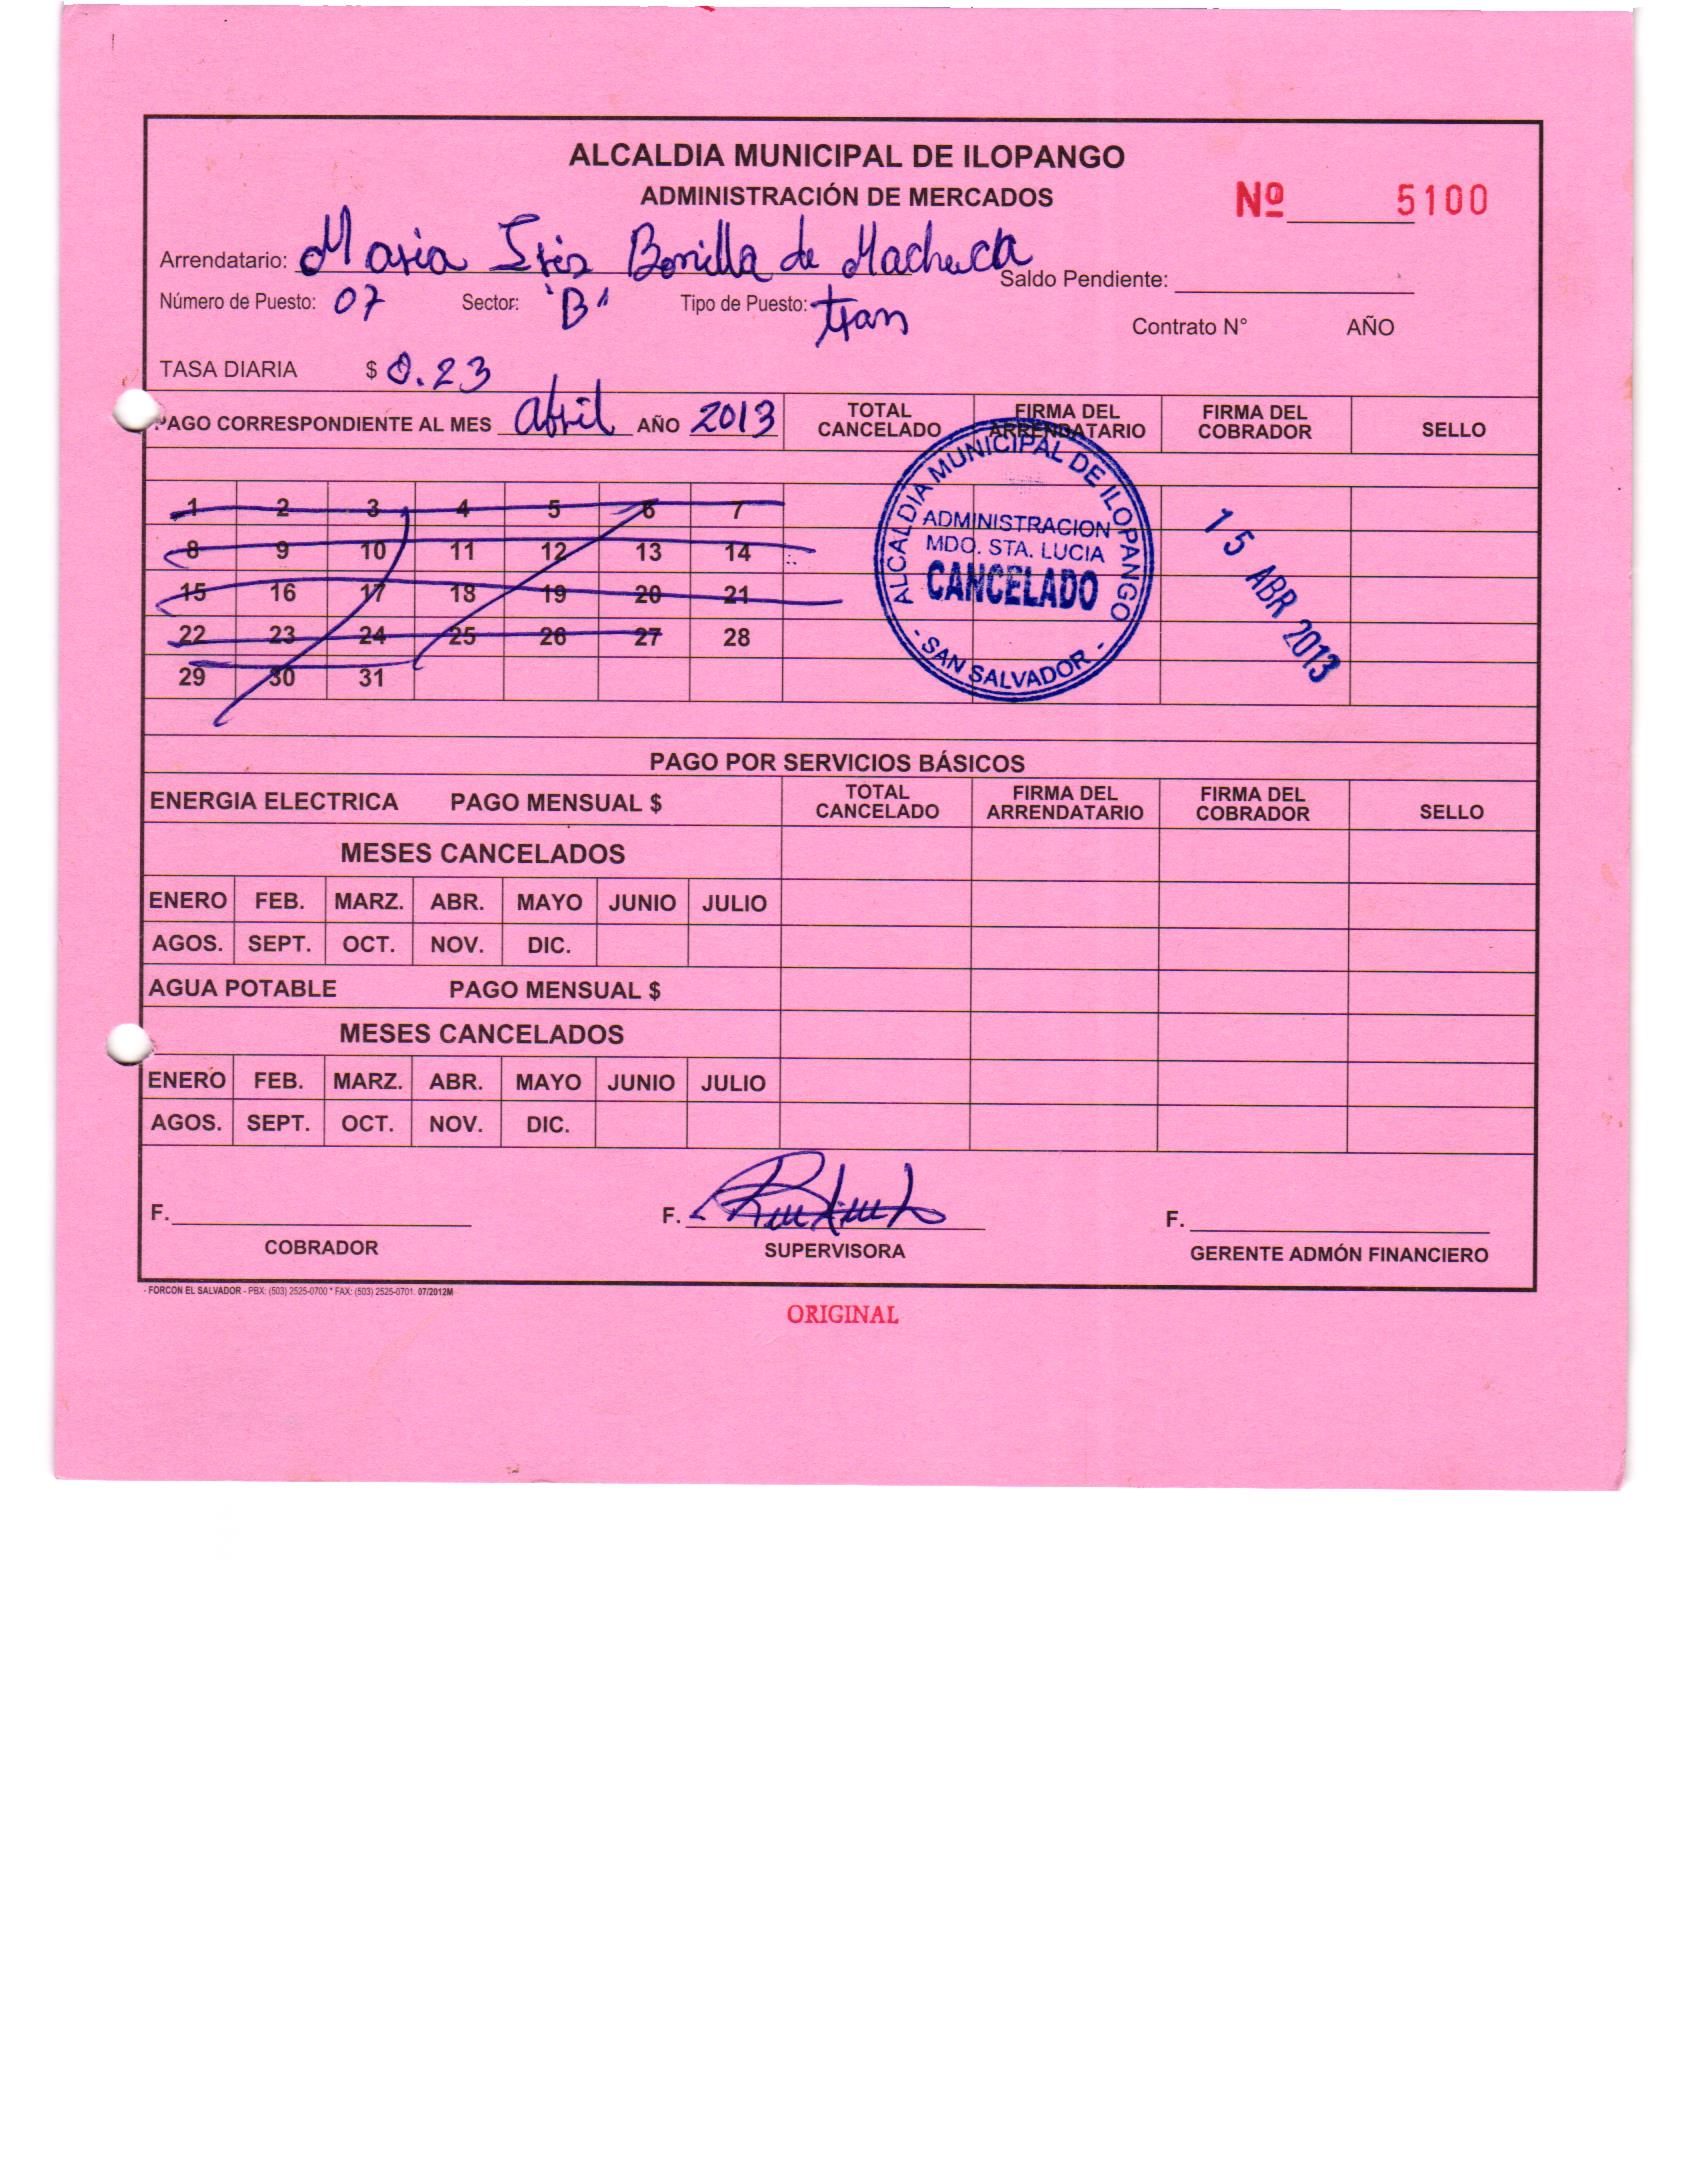 ALCALDIA MUNICIPAL DE ILOPANGO
ADMINISTRACIÓN DE MERCADOS
Nº 5100
Arrendatario: Maria Iris Bonilla de Machuca
Saldo Pendiente:
Número de Puesto: 07 Sector: "B" Tipo de Puesto: tran
Contrato N° AÑO
TASA DIARIA $ 0.23
PAGO CORRESPONDIENTE AL MES abril AÑO 2013 TOTAL CANCELADO FIRMA DEL ARRENDATARIO FIRMA DEL COBRADOR SELLO
1 2 3 4 5 6 7
8 9 10 11 12 13 14
15 16 17 18 19 20 21
22 23 24 25 26 27 28
29 30 31
ALCALDIA MUNICIPAL DE ILOPANGO
ADMINISTRACION
MDO. STA. LUCIA
CANCELADO
- SAN SALVADOR -
15 ABR 2013
PAGO POR SERVICIOS BÁSICOS
ENERGIA ELECTRICA PAGO MENSUAL $ TOTAL CANCELADO FIRMA DEL ARRENDATARIO FIRMA DEL COBRADOR SELLO
MESES CANCELADOS
ENERO FEB. MARZ. ABR. MAYO JUNIO JULIO
AGOS. SEPT. OCT. NOV. DIC.
AGUA POTABLE PAGO MENSUAL $
MESES CANCELADOS
ENERO FEB. MARZ. ABR. MAYO JUNIO JULIO
AGOS. SEPT. OCT. NOV. DIC.
F. F. F.
COBRADOR SUPERVISORA GERENTE ADMÓN FINANCIERO
- FORCON EL SALVADOR - PBX: (503) 2525-0700 * FAX: (503) 2525-0701. 07/2012M
ORIGINAL